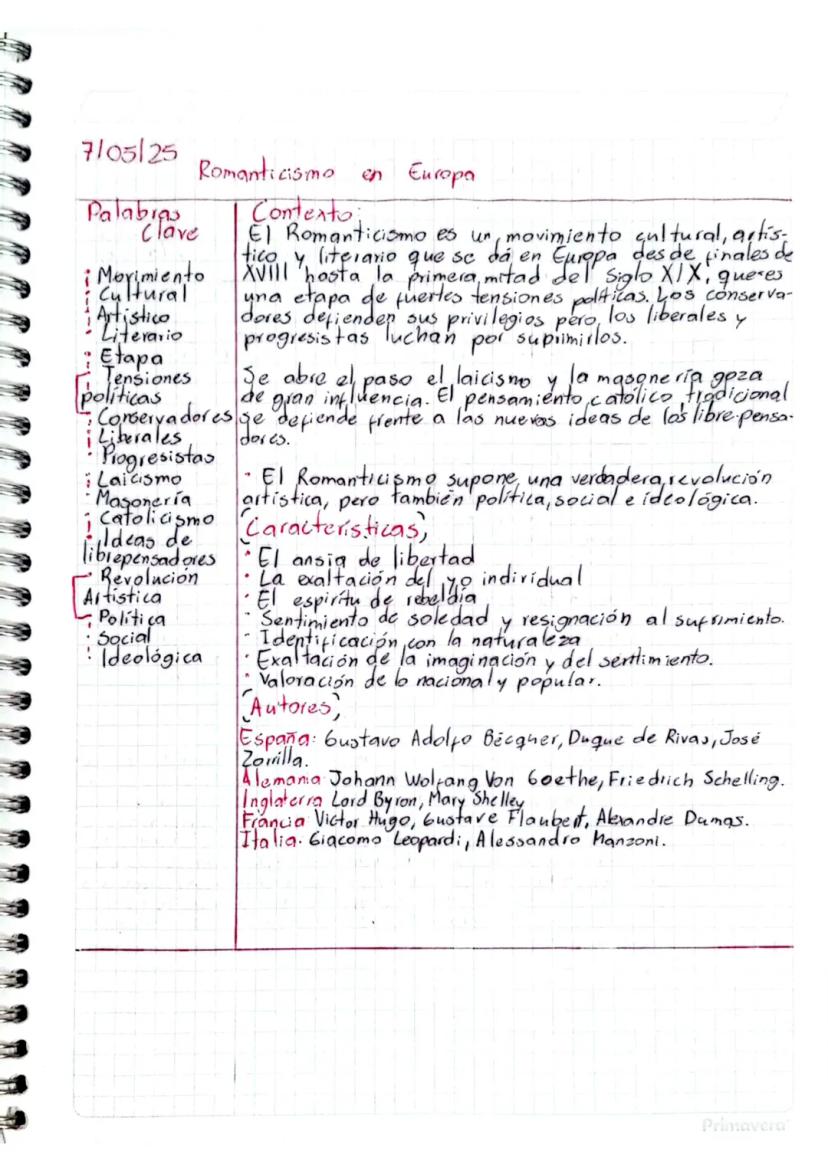 7/05/25
Romanticismo en Europa
Palabras
Clave
Movimiento
Cultural
Artístico
Literario
Etapa
Tensiones
políticas
Conservadores
Liberales
Progresistas
Laicismo
Masonería
Catolicismo
Ideas de
librepensadores
Revolución
Artística
Política
Social
Ideológica
Contexto
El Romanticismo es un movimiento cultural, artís-
tico y literario que se dá en Europa desde finales de
XVIII hasta la primera mitad del Siglo XIX, que es
una etapa de fuertes tensiones políticas. Los conserva-
dores defienden sus privilegios pero los liberales y
progresistas luchan por suprimirlos.
Se abre el paso el laicismo y la masonería goza
de gran influencia. El pensamiento católico tradicional
se defiende frente a las nuevas ideas de los libre-pensa-
dores.
· El Romanticismo supone una verdadera revolución
artística, pero también política, social e ideológica.
(Características)
· El ansia de libertad
· La exaltación del yo individual
· El espíritu de rebeldía
· Sentimiento de soledad y resignación al sufrimiento.
· Identificación con la naturaleza
· Exaltación de la imaginación y del sentimiento.
· Valoración de lo nacional y popular.
(Autores)
España: Gustavo Adolfo Bécquer, Duque de Rivas, José
Zorrilla.
Alemania Johann Wolfang Von Goethe, Friedrich Schelling.
Inglaterra Lord Byron, Mary Shelley
Francia Victor Hugo, Gustave Flaubert, Alexandre Dumas.
Italia. Giacomo Leopardi, Alessandro Manzoni.
Primavera